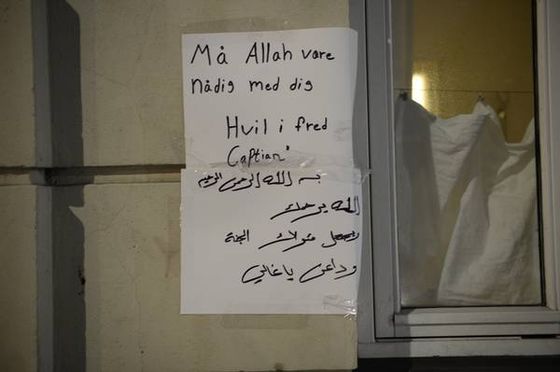 Må Allah vare
nådig med dig
Hvil i fred
Captian
بسم الله الرحمن الرحيم
الله يرحمك
ويجعل مثواك الجنة
وداعن يا غالي